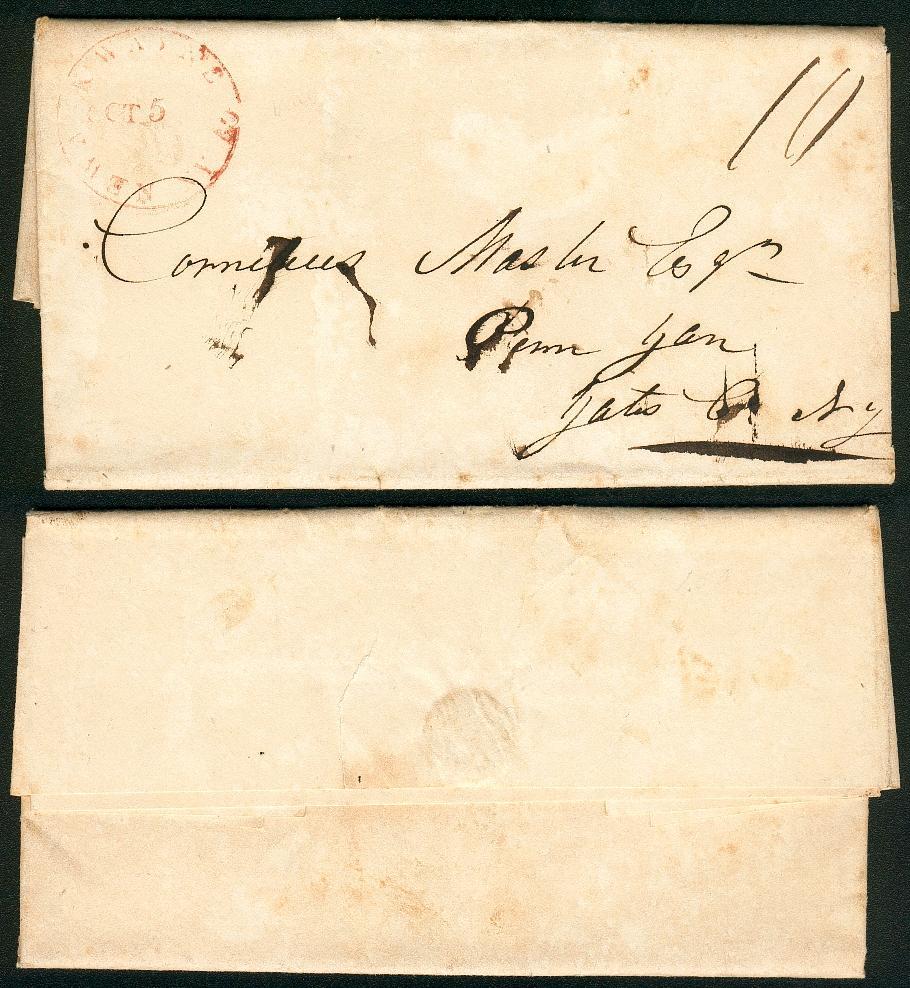 NEWARK WAYNE CO N.Y
OCT 5
10
Cornelius Master Esqr
Penn Yan
Yates Co N Y